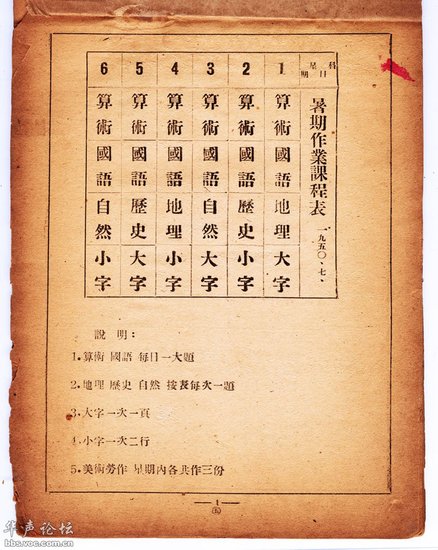 暑期作業課程表 一九五〇、七、
科目 星期
1 算術 國語 地理 大字
2 算術 國語 歷史 小字
3 算術 國語 自然 大字
4 算術 國語 地理 小字
5 算術 國語 歷史 大字
6 算術 國語 自然 小字
說明：
1.算術 國語 每日一大題
2.地理 歷史 自然 按表每次一題
3.大字一次一頁
4.小字一次二行
5.美術勞作 星期內各共作三份
1
华声论坛
bbs.voc.com.cn